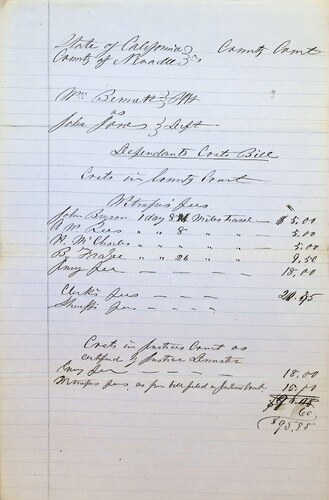 State of California } ss County Court
County of Nevada }
Wm Bennett } Plff
vs
John } Deft
Defendants Costs Bill
Costs in County Court
Witness fees
John Byron 1 day 8 Miles travel — $5.00
" " 8 " " — 5.00
H. McCharles " " " " — 5.00
B. " " 26 " " — 9.50
Jury fee — — — — 18.00
Clerks fees — — —
Sheriffs fees — — —
Costs in Justices Court as
certified by Justice
Jury fee — — — — 18.00
Witness fees as per bill filed in Justices Court 15.00
60
$95.80